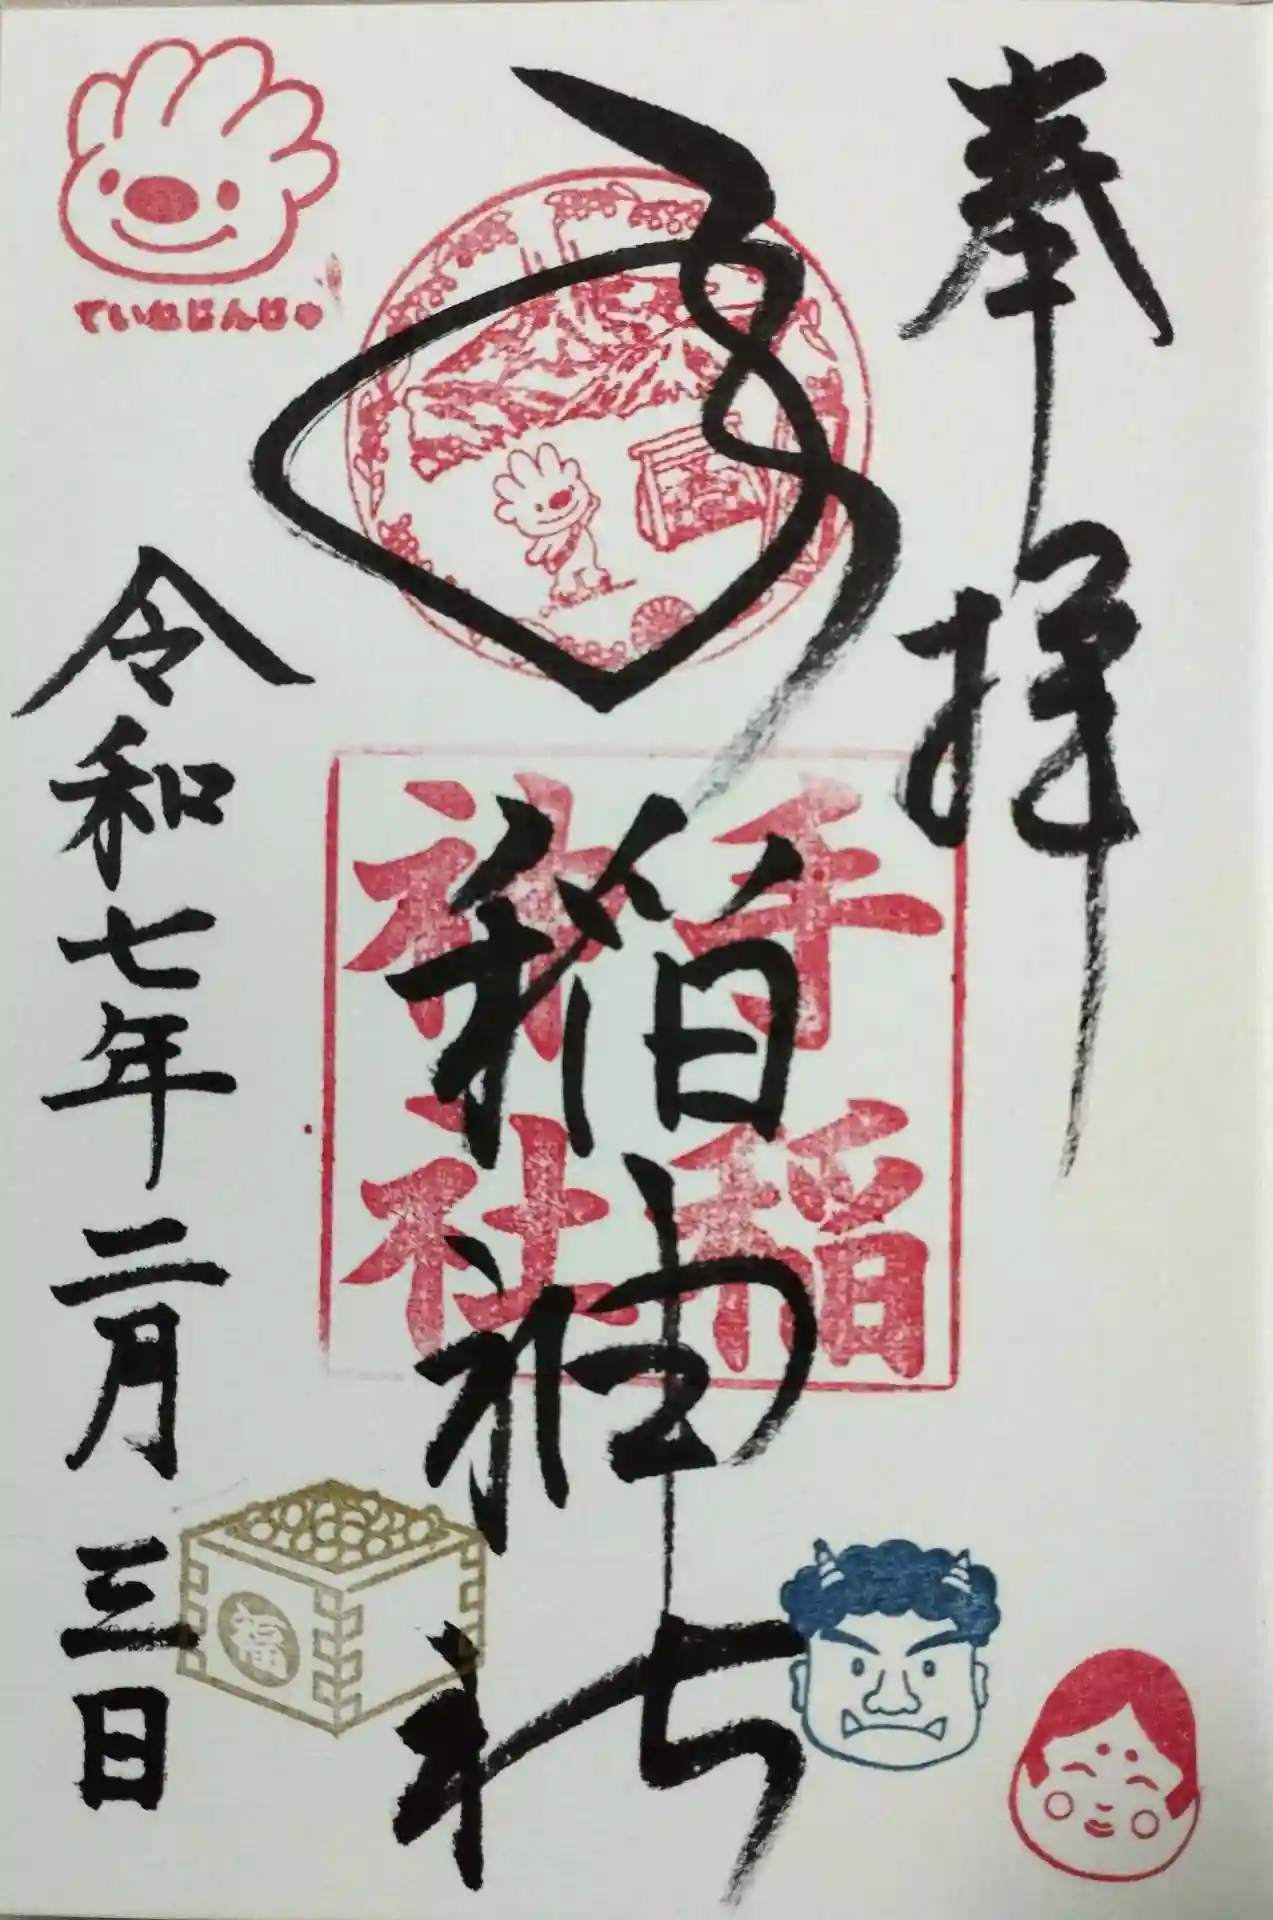 奉拝
手稲神社
手稲
神社
令和七年二月三日
ていねじんじゃ
福